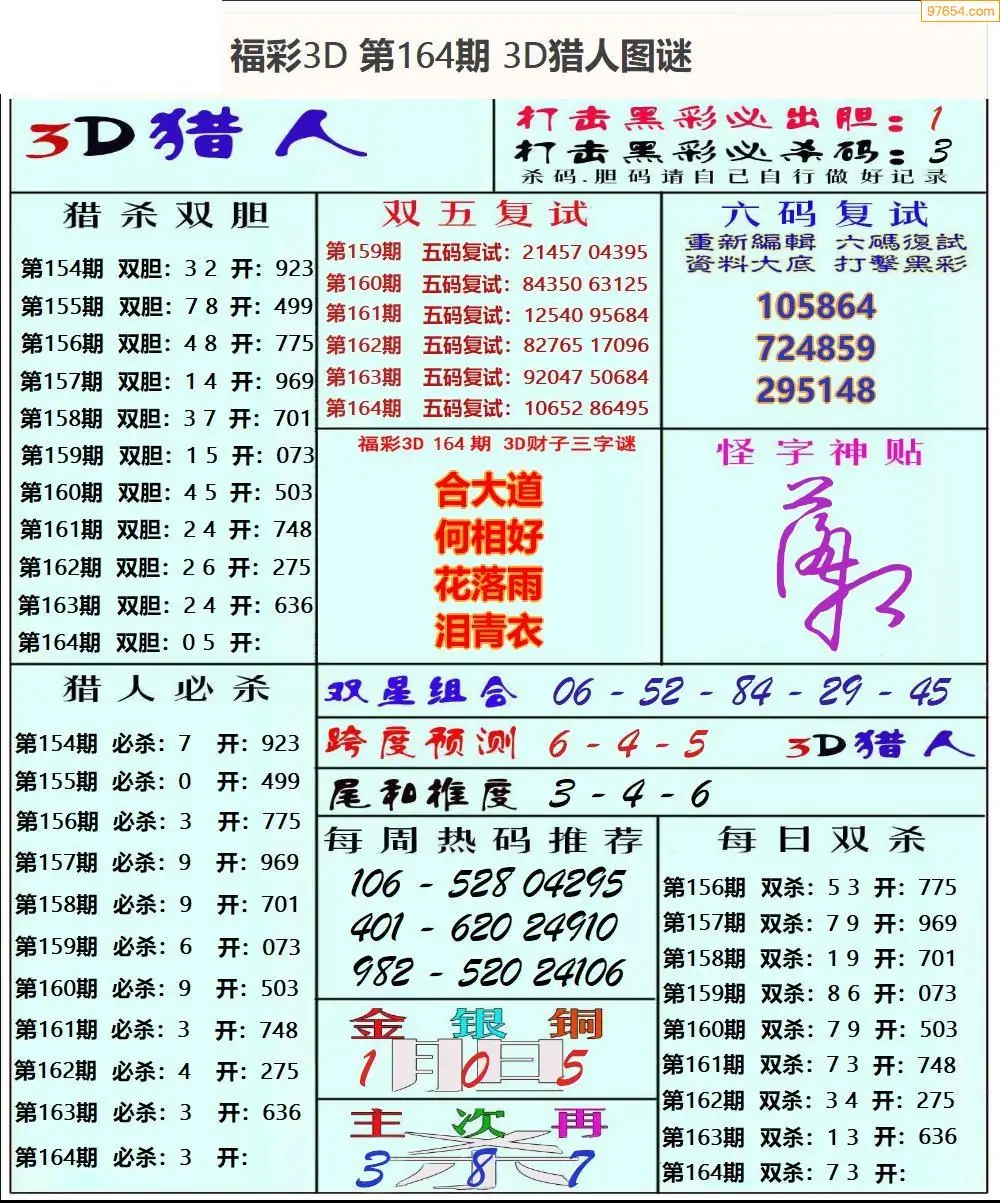 97654.com
福彩3D 第164期 3D猎人图谜
3D猎人
打击黑彩必出胆：1
打击黑彩必杀码：3
杀码.胆码请自己自行做好记录
猎杀双胆
第154期 双胆：3 2 开：923
第155期 双胆：7 8 开：499
第156期 双胆：4 8 开：775
第157期 双胆：1 4 开：969
第158期 双胆：3 7 开：701
第159期 双胆：1 5 开：073
第160期 双胆：4 5 开：503
第161期 双胆：2 4 开：748
第162期 双胆：2 6 开：275
第163期 双胆：2 4 开：636
第164期 双胆：0 5 开：
双五复试
第159期 五码复试：21457 04395
第160期 五码复试：84350 63125
第161期 五码复试：12540 95684
第162期 五码复试：82765 17096
第163期 五码复试：92047 50684
第164期 五码复试：10652 86495
六码复试
重新編輯 六碼復試
資料大底 打擊黑彩
105864
724859
295148
福彩3D 164 期 3D财子三字谜
合大道
何相好
花落雨
泪青衣
怪字神贴
猎人必杀
第154期 必杀：7 开：923
第155期 必杀：0 开：499
第156期 必杀：3 开：775
第157期 必杀：9 开：969
第158期 必杀：9 开：701
第159期 必杀：6 开：073
第160期 必杀：9 开：503
第161期 必杀：3 开：748
第162期 必杀：4 开：275
第163期 必杀：3 开：636
第164期 必杀：3 开：
双星组合 06 - 52 - 84 - 29 - 45
跨度预测 6 - 4 - 5 3D猎人
尾和推度 3 - 4 - 6
每周热码推荐
106 - 528 04295
401 - 620 24910
982 - 520 24106
金银铜
胆
1 0 5
主次再
杀
3 8 7
每日双杀
第156期 双杀：5 3 开：775
第157期 双杀：7 9 开：969
第158期 双杀：1 9 开：701
第159期 双杀：8 6 开：073
第160期 双杀：7 9 开：503
第161期 双杀：7 3 开：748
第162期 双杀：3 4 开：275
第163期 双杀：1 3 开：636
第164期 双杀：7 3 开：